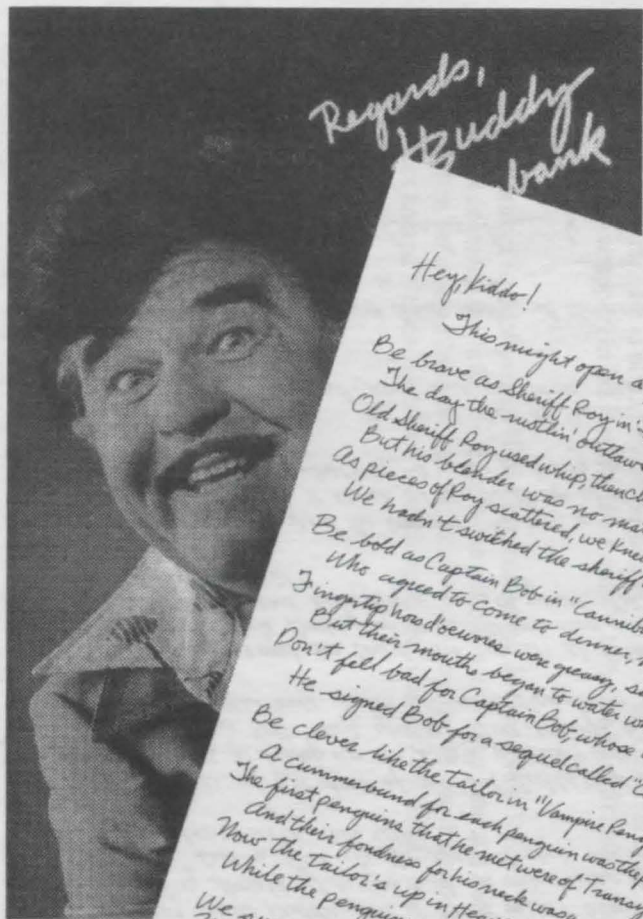 Regards,
Buddy
bank
Hey, Kiddo!
This might open a
Be brave as Sheriff Roy in
The day the rustlin' outlaw
Old Sheriff Roy used whip, then
But his blender was no
As pieces of Roy scattered, we
We hadn't switched the sheriff
Be bold as Captain Bob in "
Who agreed to come to dinner,
Fingertip hors d'oeuvres were greasy,
But their mouths began to water
Don't fell bad for Captain Bob, whose
He signed Bob for a sequel called "
Be clever like the tailor in "Vampire
A cummerbund for each penguin was
The first penguins that he met were of
And their fondness for his neck was
Now the tailor's up in
While the
We